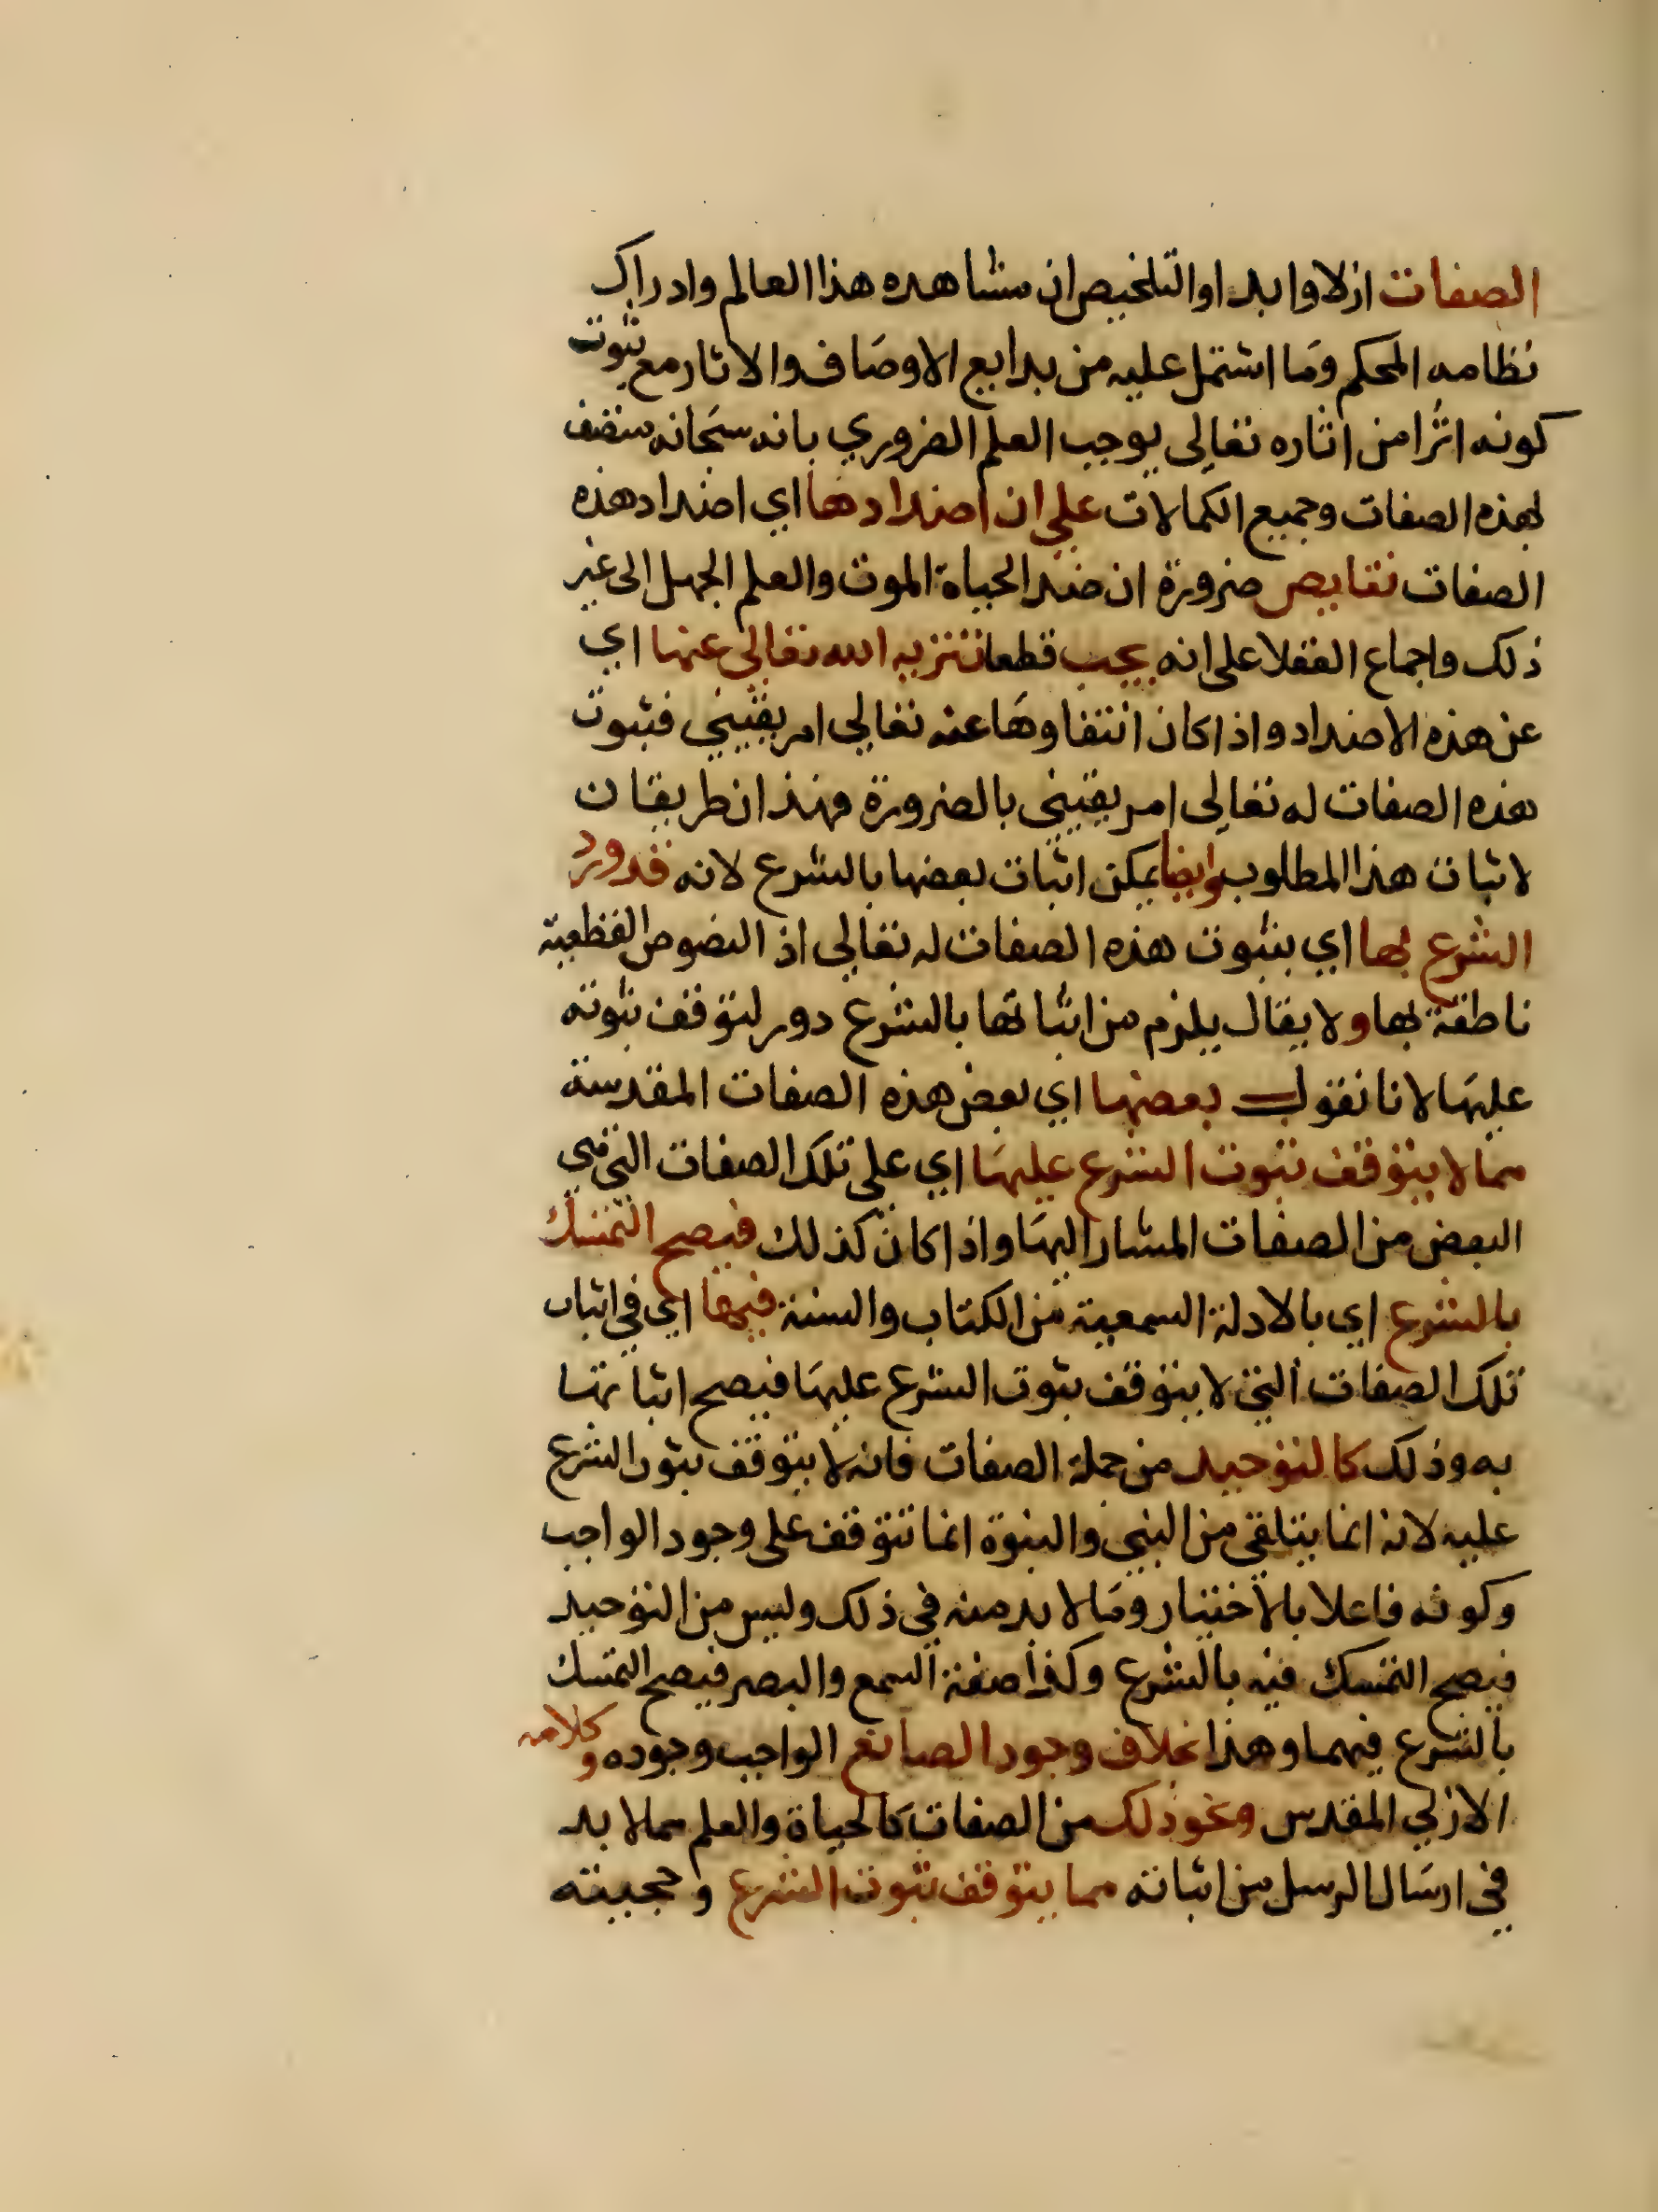 الصفات ازلا وابدا والتلخيص ان مشاهده هذا العالم وادراك
نظامه المحكم وما اشتمل عليه من بدايع الاوصاف والاثار مع ثبوت
كونه اثرا من اثاره تعالى يوجب العلم الضروري بانه سبحانه متصف
لهذه الصفات وجميع الكمالات على ان اضدادها اي اضداد هذه
الصفات نقايص ضرورة ان ضد الحياة الموت والعلم الجهل الى غير
ذلك واجماع العقلا على انه يجب قطعا تنزيه الله تعالى عنها اي
عن هذه الاضداد واذا كان انتفاوها عنه تعالى امر يقيني فثبوت
هذه الصفات له تعالى امر يقيني بالضرورة فهذان طريقان
لاثبات هذا المطلوب وايضا يمكن اثبات بعضها بالشرع لانه قد ورد
الشرع بها اي بثبوت هذه الصفات له تعالى اذ النصوص القطعية
ناطقة بها ولا يقال يلزم من اثباتها بالشرع دور لتوقف ثبوته
عليها لانا نقول بعضها اي بعض هذه الصفات المقدسة
مما لا يتوقف ثبوت الشرع عليها اي على تلك الصفات التي هي
البعض من الصفات المشار اليها واذا كان كذلك فيصح التمسك
بالشرع اي بالادلة السمعية من الكتاب والسنة فيها اي في اثبات
تلك الصفات التي لا يتوقف ثبوت الشرع عليها فيصح اثباتها
به وذلك كالتوحيد من جملة الصفات فانه لا يتوقف ثبوت الشرع
عليه لانه انما يتلقى من النبي والنبوة انما تتوقف على وجود الواجب
وكونه فاعلا بالاختيار وما لا بد منه في ذلك وليس من التوحيد
فيصح التمسك فيه بالشرع وكذا صفة السمع والبصر فيصح التمسك
بالشرع فيهما وهذا بخلاف وجود الصانع الواجب وجوده وكلامه
الازلي المقدس ونحو ذلك من الصفات كالحياة والعلم مما لا بد
في ارسال الرسل من اثباته مما يتوقف ثبوت الشرع وحجيته